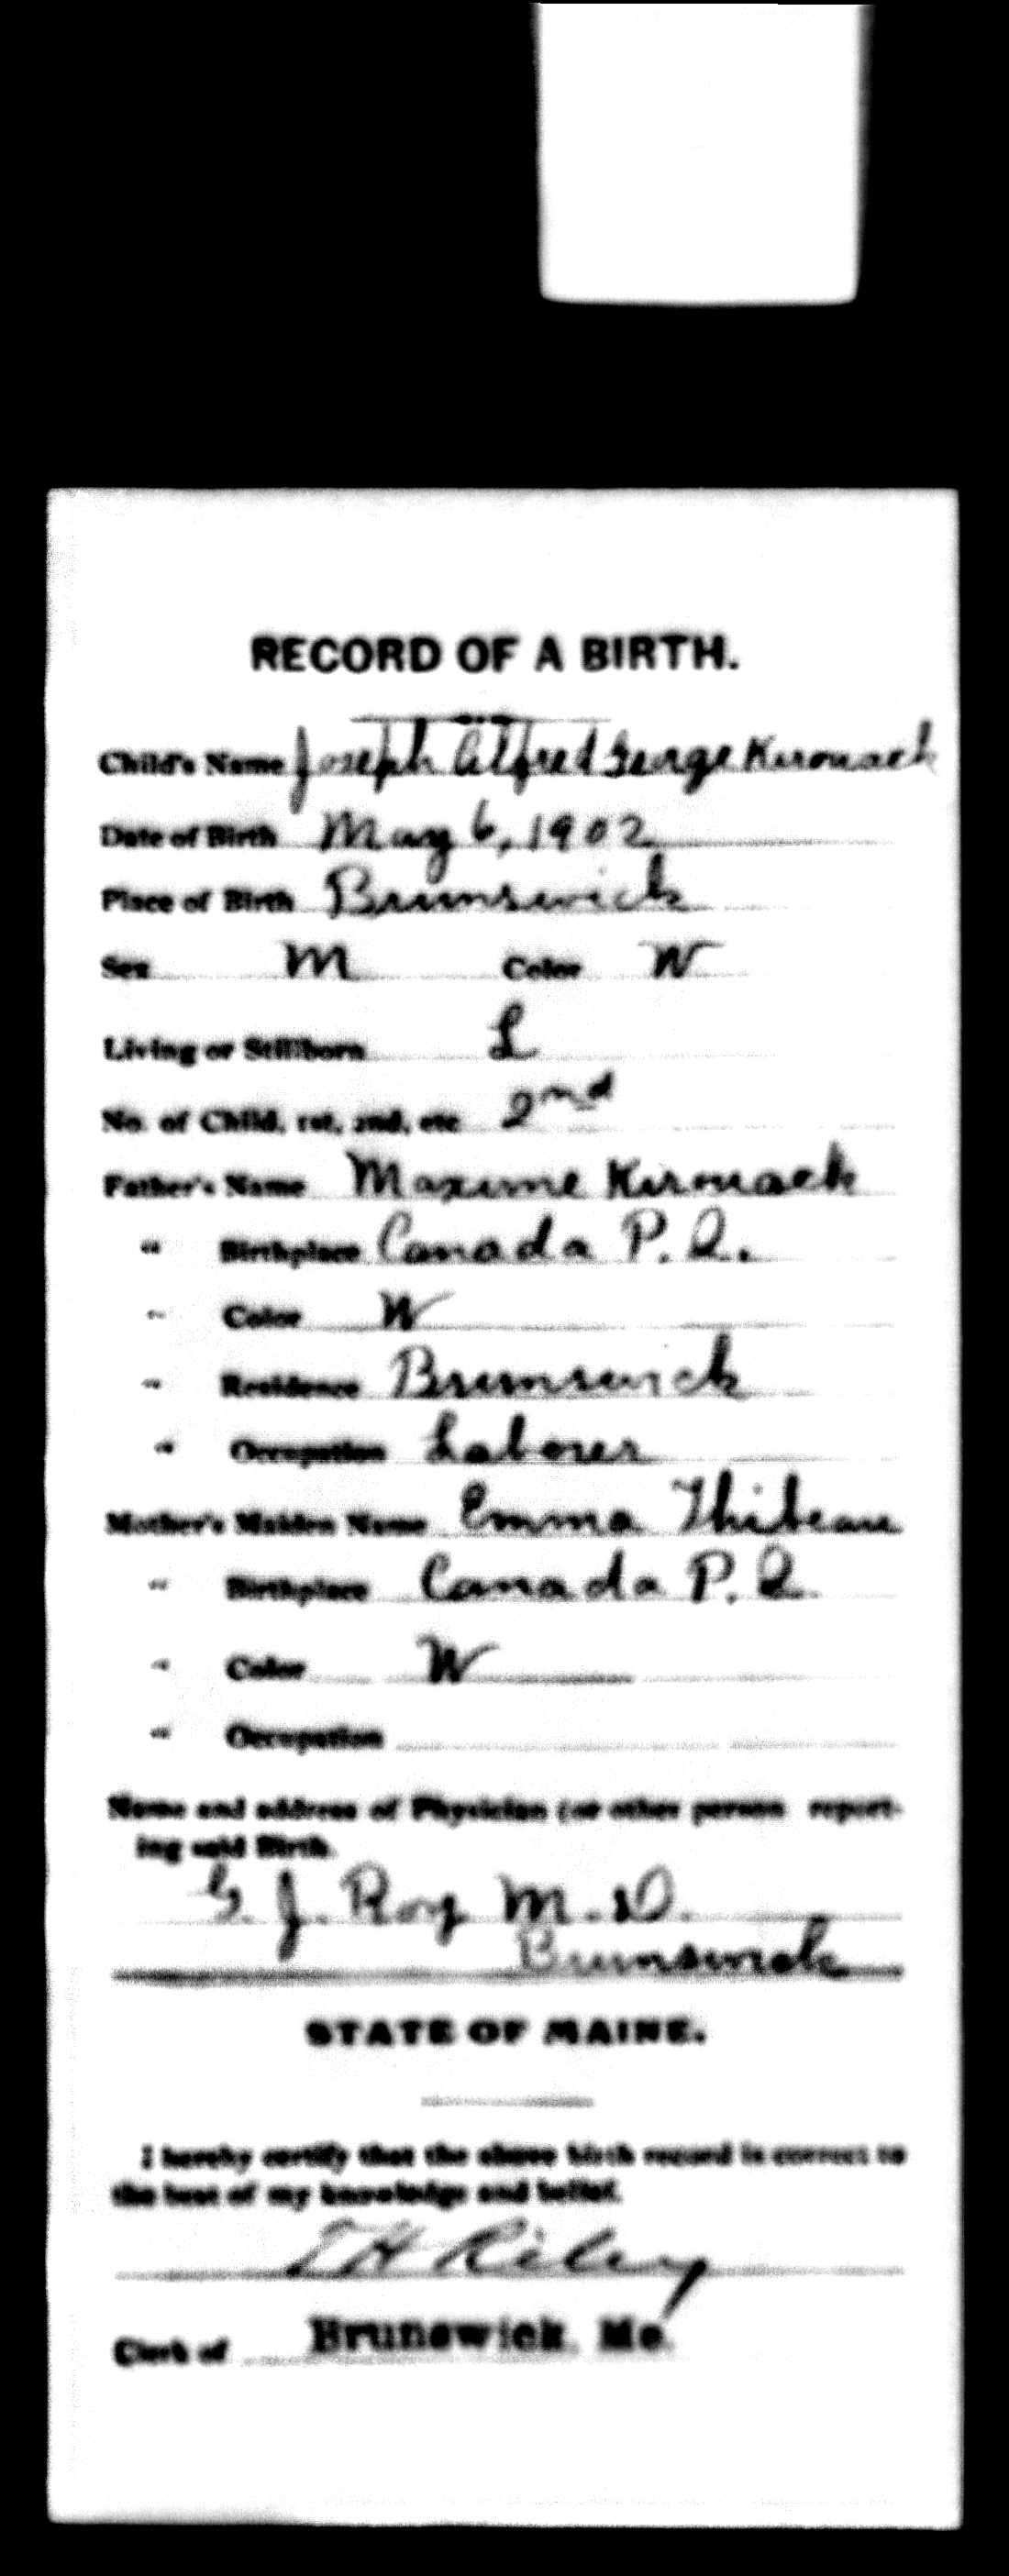 RECORD OF A BIRTH.
Child's Name Joseph Alfred George Kirouack
Date of Birth May 6, 1902
Place of Birth Brunswick
Sex M Color W
Living or Stillborn L
No. of Child, 1st, 2nd, etc. 2nd
Father's Name Maxime Kirouack
" Birthplace Canada P. Q.
" Color W
" Residence Brunswick
" Occupation Laborer
Mother's Maiden Name Emma Thibeau
" Birthplace Canada P. Q.
" Color W
" Occupation
Name and address of Physician (or other person report-
ing said Birth.
J. Roy M. D.
Brunswick
STATE OF MAINE.
I hereby certify that the above birth record is correct to
the best of my knowledge and belief.
Riley
Clerk of Brunswick, Me.